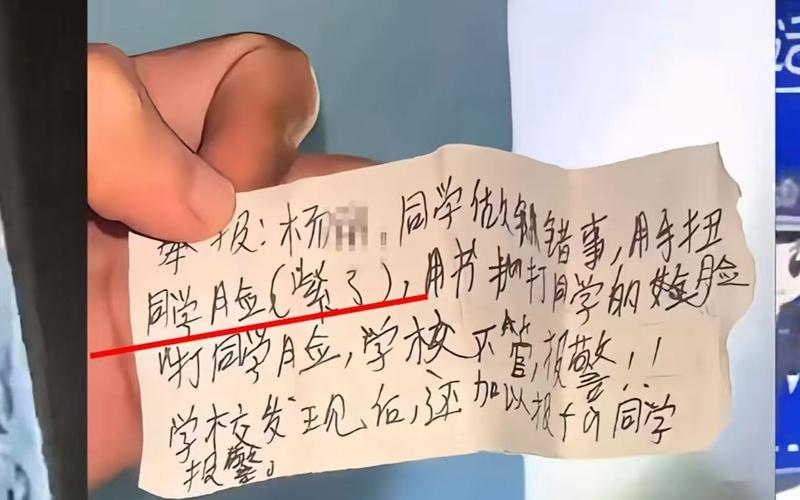 举报:杨,同学做错事,用手扭
同学脸(紫了),用书打同学的脸
打同学脸,学校不管,报警!!
学校发现后,还加以报同学
报警。